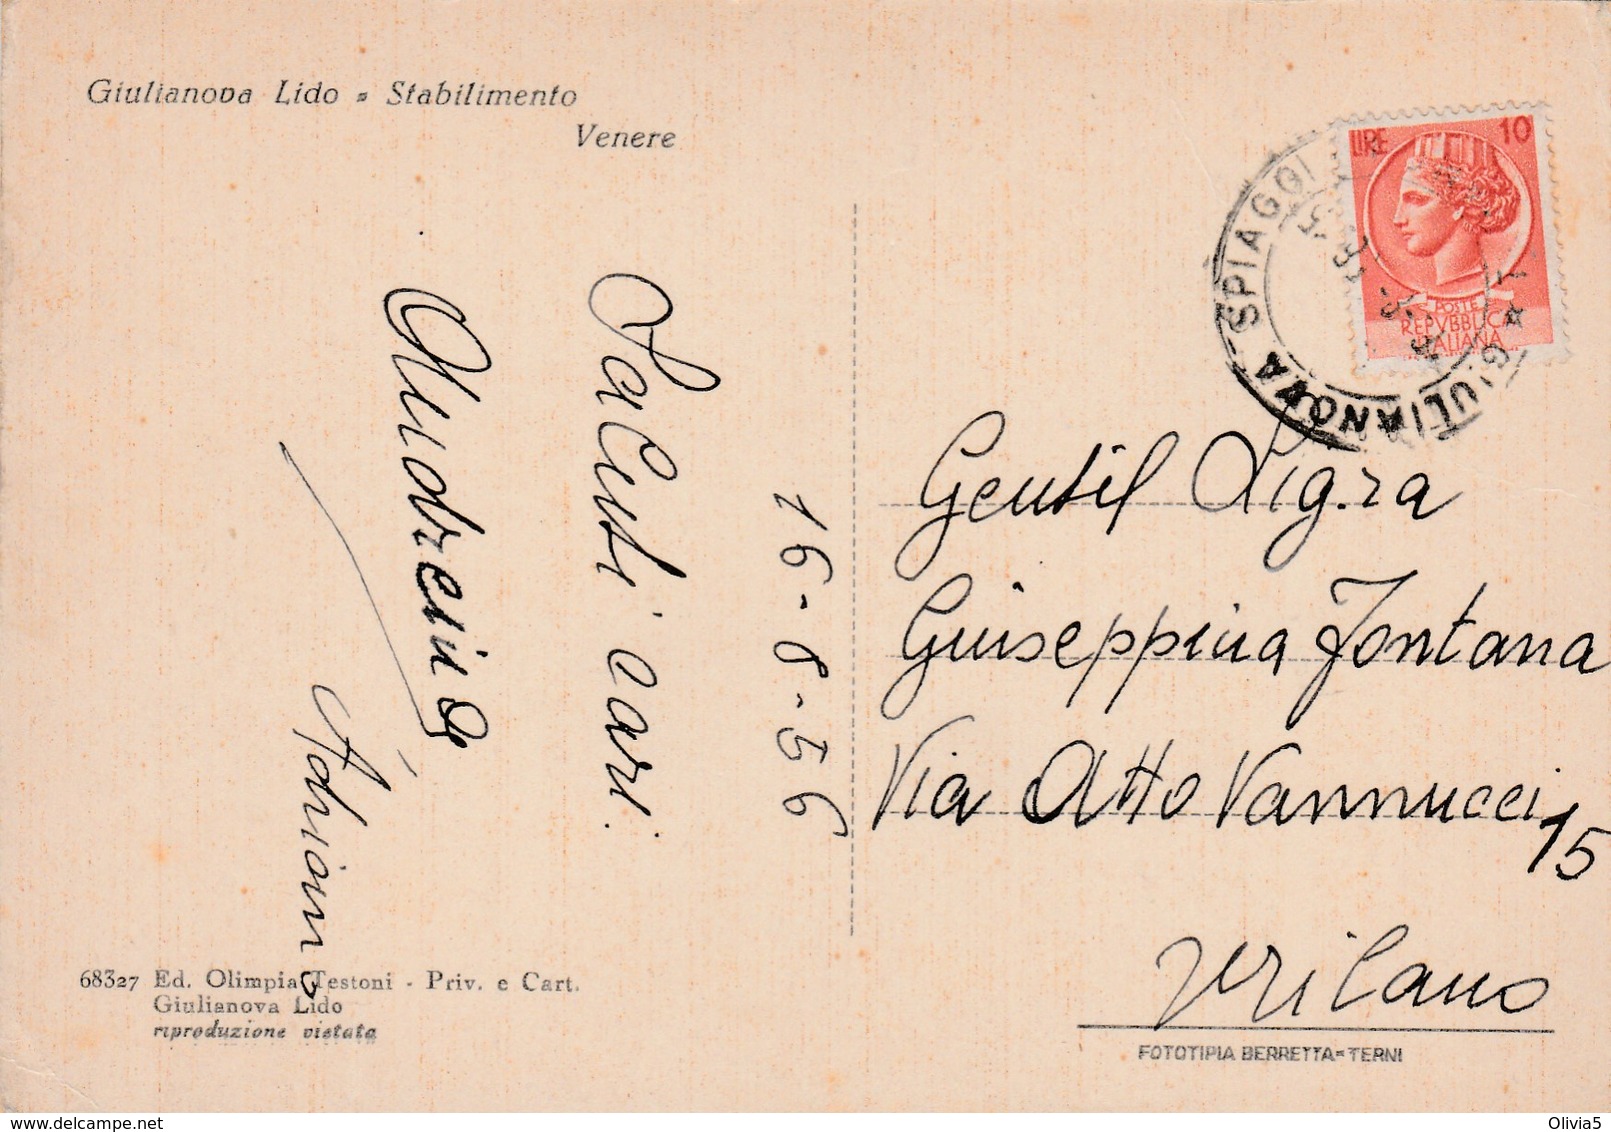 Giulianova Lido - Stabilimento
Venere
LIRE 10
POSTE
REPVBBLICA
ITALIANA
GIULIANOVA SPIAGGIA
16-8-56
Saluti cari.
Andreina
Adriano
Gentil Sig.ra
Giuseppina Fontana
Via Atto Vannucci
15
Milano
68327 Ed. Olimpia Testoni - Priv. e Cart.
Giulianova Lido
riproduzione vietata
FOTOTIPIA BERRETTA-TERNI
delcampe.net
Olivia5